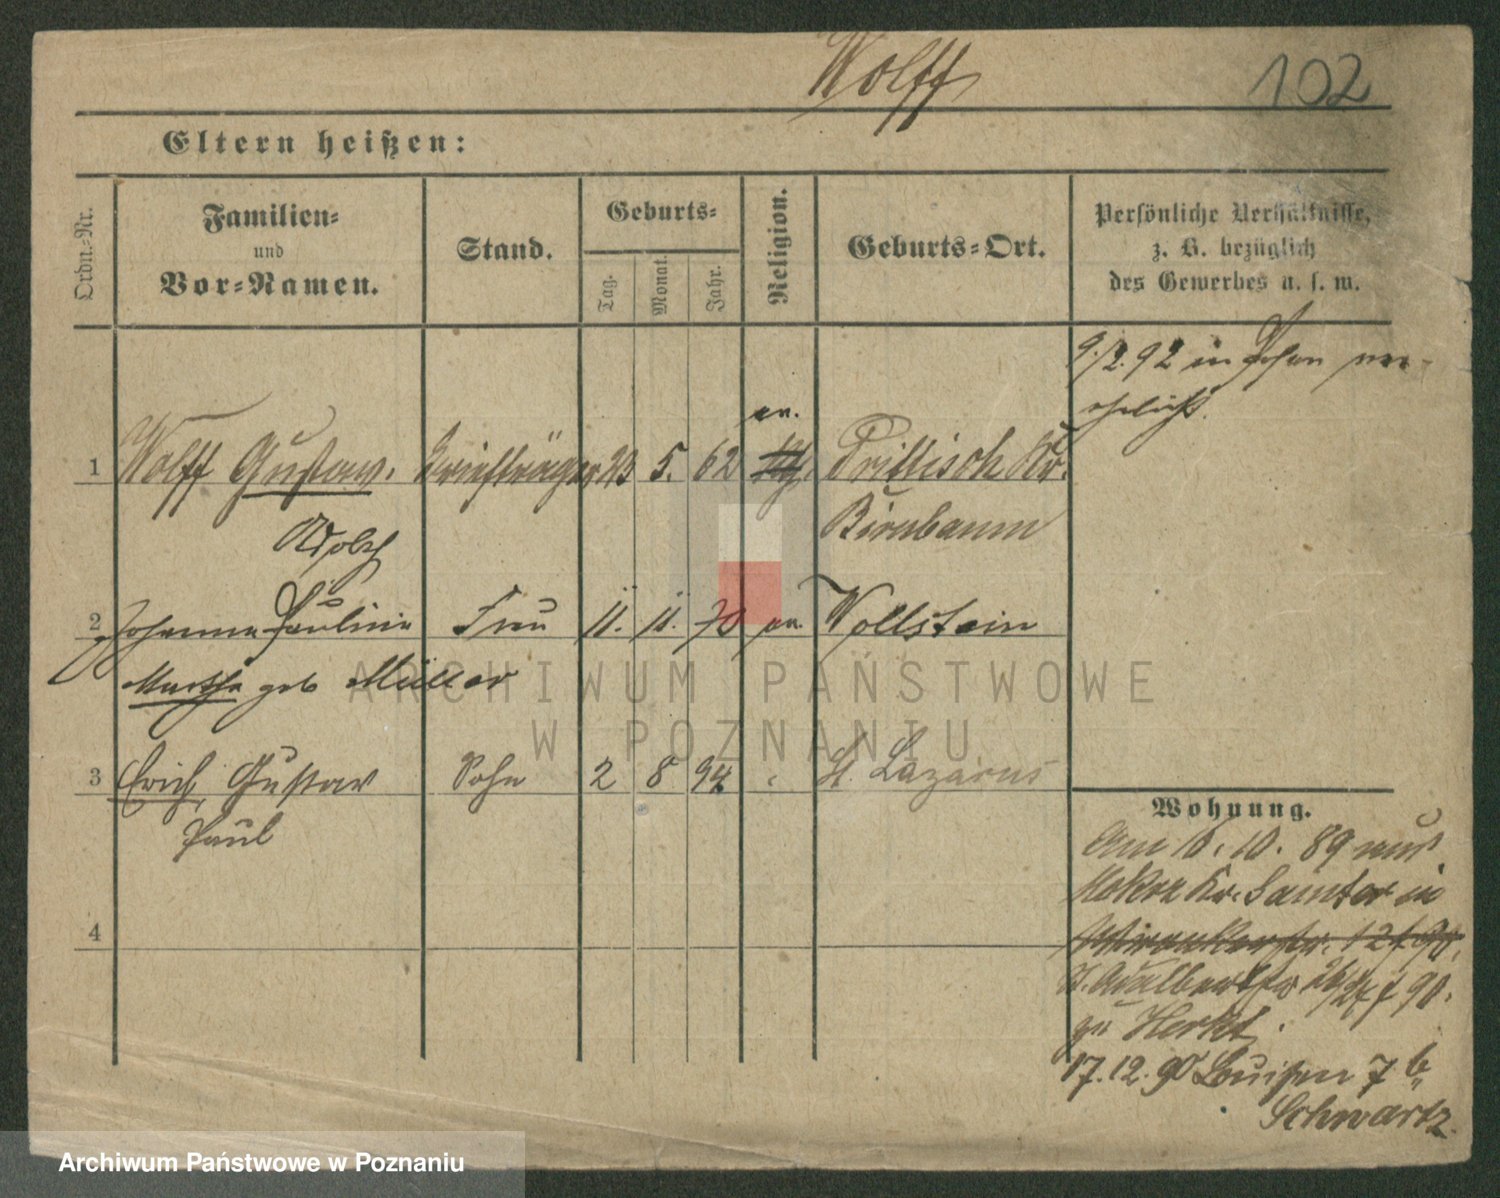 Wolff
102
Eltern heißen:
Ordn.-Nr.
Familien-
und
Vor-Namen.
Stand.
Geburts-
Tag.
Monat.
Jahr.
Religion.
Geburts-Ort.
Persönliche Verhältnisse,
z. B. bezüglich
des Gewerbes u. s. w.
9./2. 92 in Posen ver-
ehelicht.
ev.
1 Wolff Gustav. Briefträger 23 5. 62 Prittisch Kr.
Adolf Birnbaum
2 Johanna Pauline Frau 11. 11. 70 ev. Wollstein
Martha geb Müller
3 Erich, Gustav Sohn 2 8 94 St. Lazarus
Paul
4
Wohnung.
Am 16. 10. 89 aus
Kr. Samter in
St. Adalbertstr 26/27 f 90.
zu Herkt.
17.12.90 Louisen 7b,
Schwartz.
ARCHIWUM PAŃSTWOWE
W POZNANIU
Archiwum Państwowe w Poznaniu